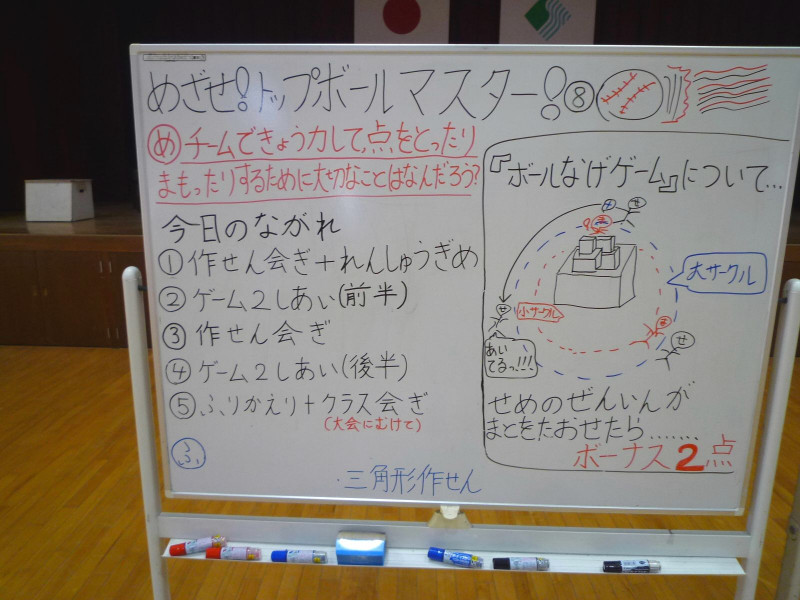 めざせ!トップボールマスター!⑧
め チームできょう力して、点をとったり
まもったりするために大切なことはなんだろう?
今日のながれ
①作せん会ぎ+れんしゅうぎめ
②ゲーム2しあい(前半)
③作せん会ぎ
④ゲーム2しあい(後半)
⑤ふりかえり+クラス会ぎ
(大会にむけて)
ふ
・三角形作せん
『ボールなげゲーム』について…
せ
大サークル
小サークル
せ
せ
あいてるっ!!!
せめのぜんいんが
まとをたおせたら……
ボーナス2点